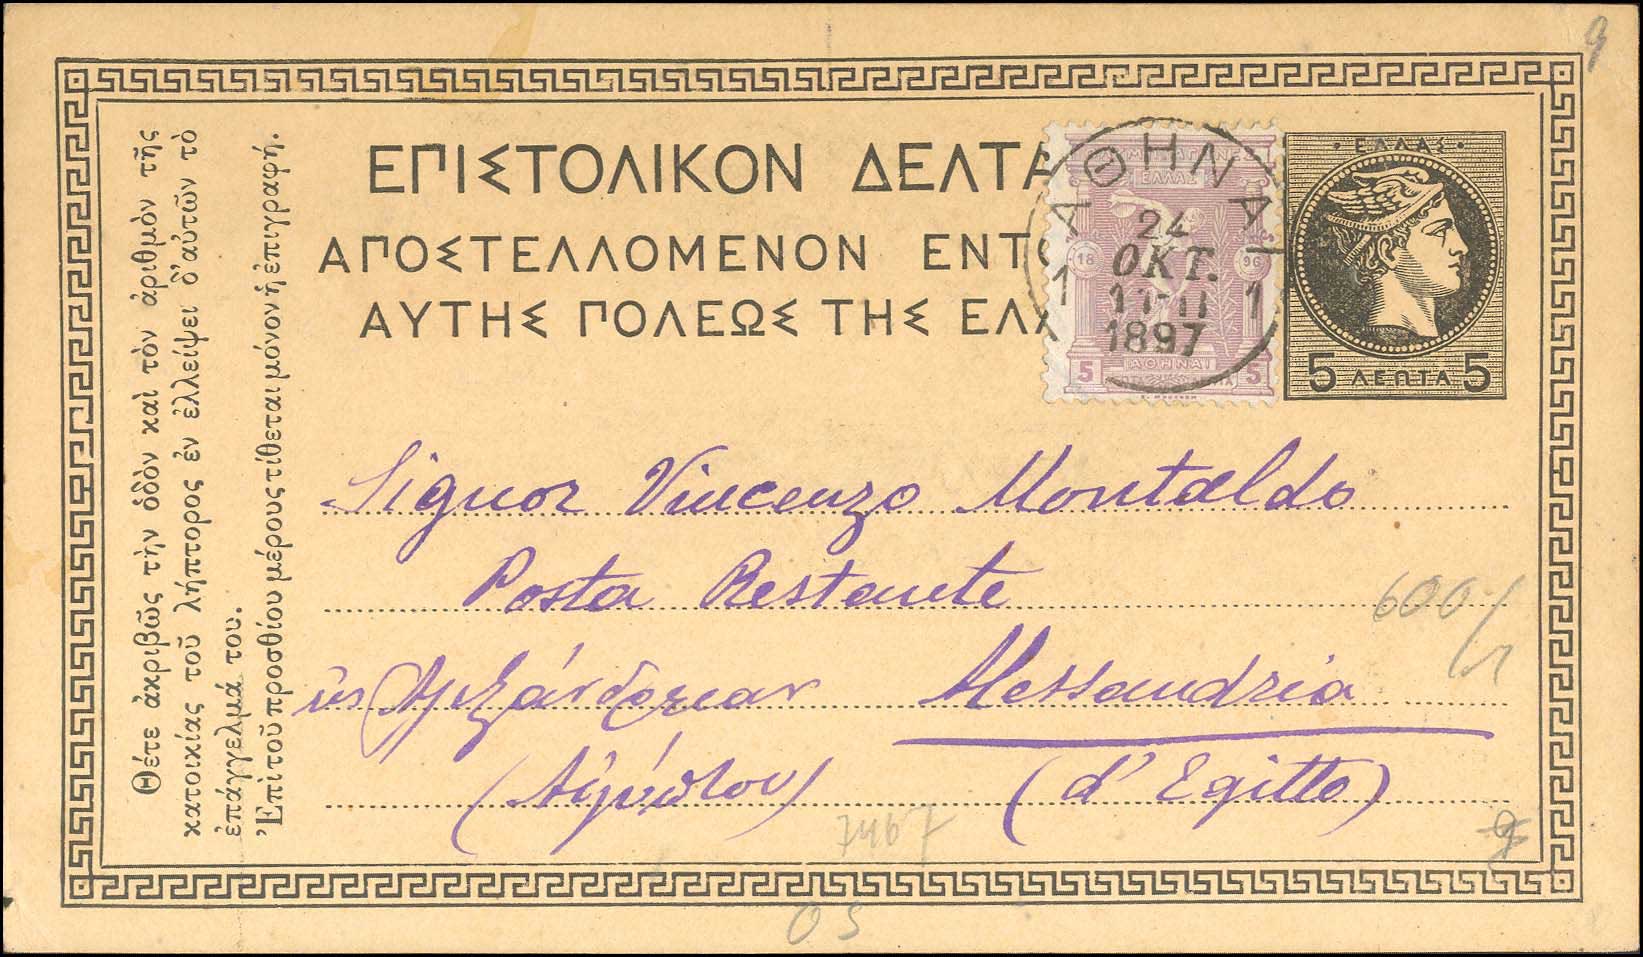 ΕΠΙΣΤΟΛΙΚΟΝ ΔΕΛΤΑ
ΑΠΟΣΤΕΛΛΟΜΕΝΟΝ ΕΝΤΟ
ΑΥΤΗΣ ΠΟΛΕΩΣ ΤΗΣ ΕΛΛ
Θέτε ἀκριβῶς τὴν ὁδὸν καὶ τὸν ἀριθμὸν τῆς
κατοικίας τοῦ λήπτορος ἐν ἐλλείψει δ'αὐτῶν τὸ
ἐπάγγελμά του.
Ἐπὶ τοῦ προσθίου μέρους τίθεται μόνον ἡ ἐπιγραφή.
ΕΛΛΑΣ
18 96
ΑΘΗΝΑΙ
5 5
ΑΘΗΝΑΙ
24
ΟΚΤ.
1 1
1897
ΕΛΛΑΣ
5 ΛΕΠΤΑ 5
Signor Vincenzo Montaldo
Posta Restante
εἰς Ἀλεξάνδρειαν Alessandria
(Αἰγύπτου) (d'Egitto)
600
9